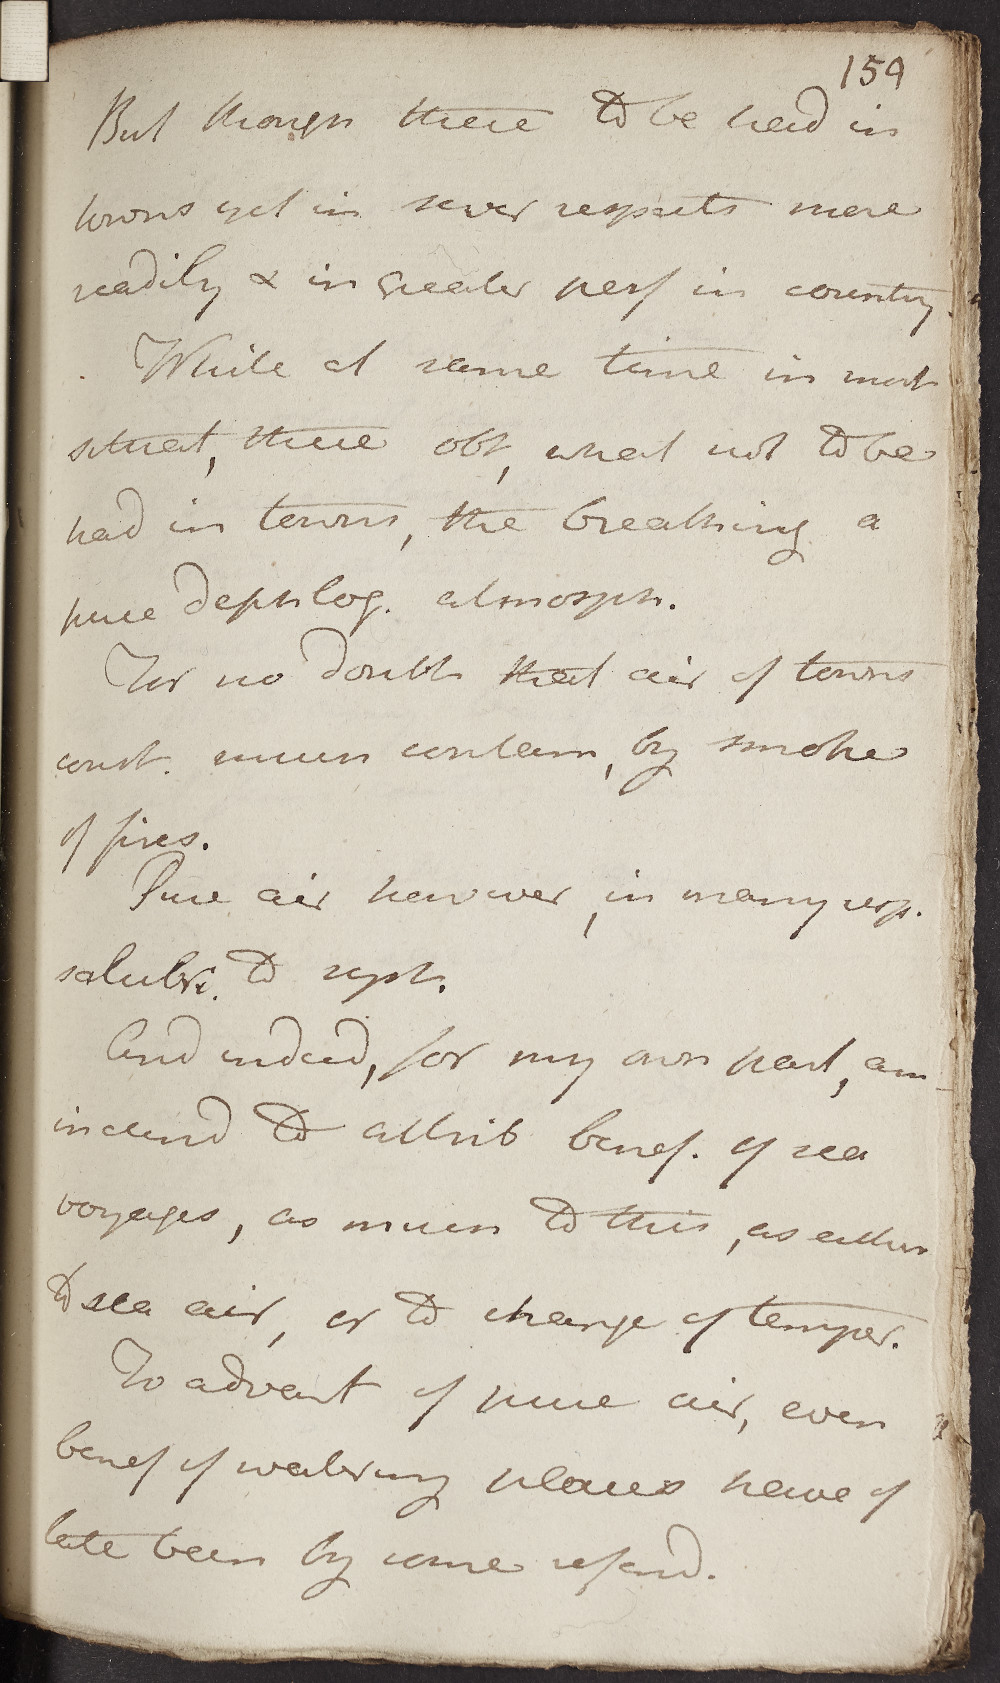 159
But though these to be had in
towns yet in sever respects more
readily & in Greater perf in country.
While at same time in most
situat, there obt, what not to be
had in towns, the breathing a
pure dephlog. atmosph.
For no doubt that air of towns
const. much contam, by smoke
of fires.
Pure air however, in many resp.
salubr. to syst.
And indeed, for my own part, am
inclind to attrib benef. of sea
voyages, as much to this, as either
to sea air, or to change of temper.
To advant of pure air, even
benef of watering places have of
late been by some referd.